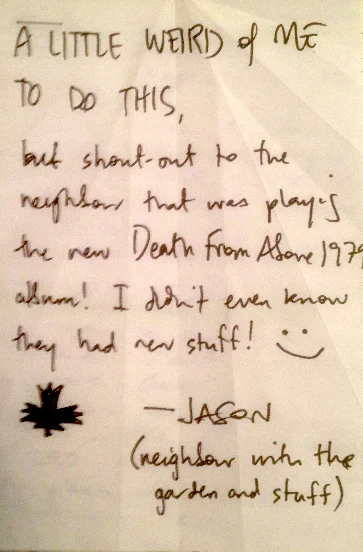 A LITTLE WEIRD of ME
TO DO THIS,
but shout-out to the
neighbour that was playing
the new Death From Above 1979
album! I didn't even know
they had new stuff! :)
—JASON
(neighbour with the
garden and stuff)